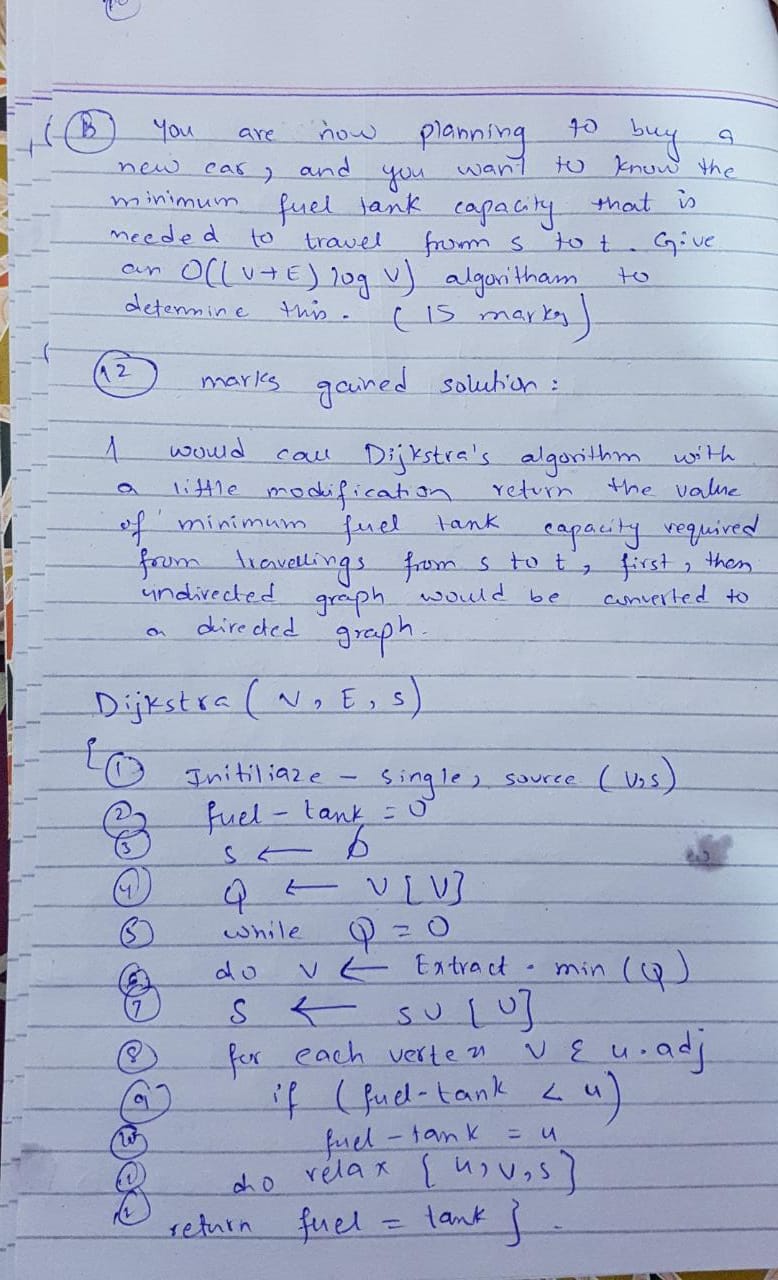 (B) You are now planning to buy a
new car, and you want to know the
minimum fuel tank capacity that is
needed to travel from s to t. Give
an O((V+E) log V) algoritham to
determine this. (15 marks)
12 marks gained solution:
I would call Dijkstra's algorithm with
a little modification return the value
of minimum fuel tank capacity required
from travellings from s to t, first, then
undirected graph would be converted to
a directed graph.
Dijkstra (V, E, s)
{ (1) Initiliaze - single, source (V,s)
(2) fuel - tank = 0
(3) s ← ϕ
(4) Q ← V[V]
(5) while Q = 0
(6) do v ← Extract - min (Q)
(7) S ← S U [U]
(8) for each vertex v ε u.adj
(9) if (fuel-tank < u)
(10) fuel - tank = u
(11) do relax [u,v,s]
(12) return fuel = tank }